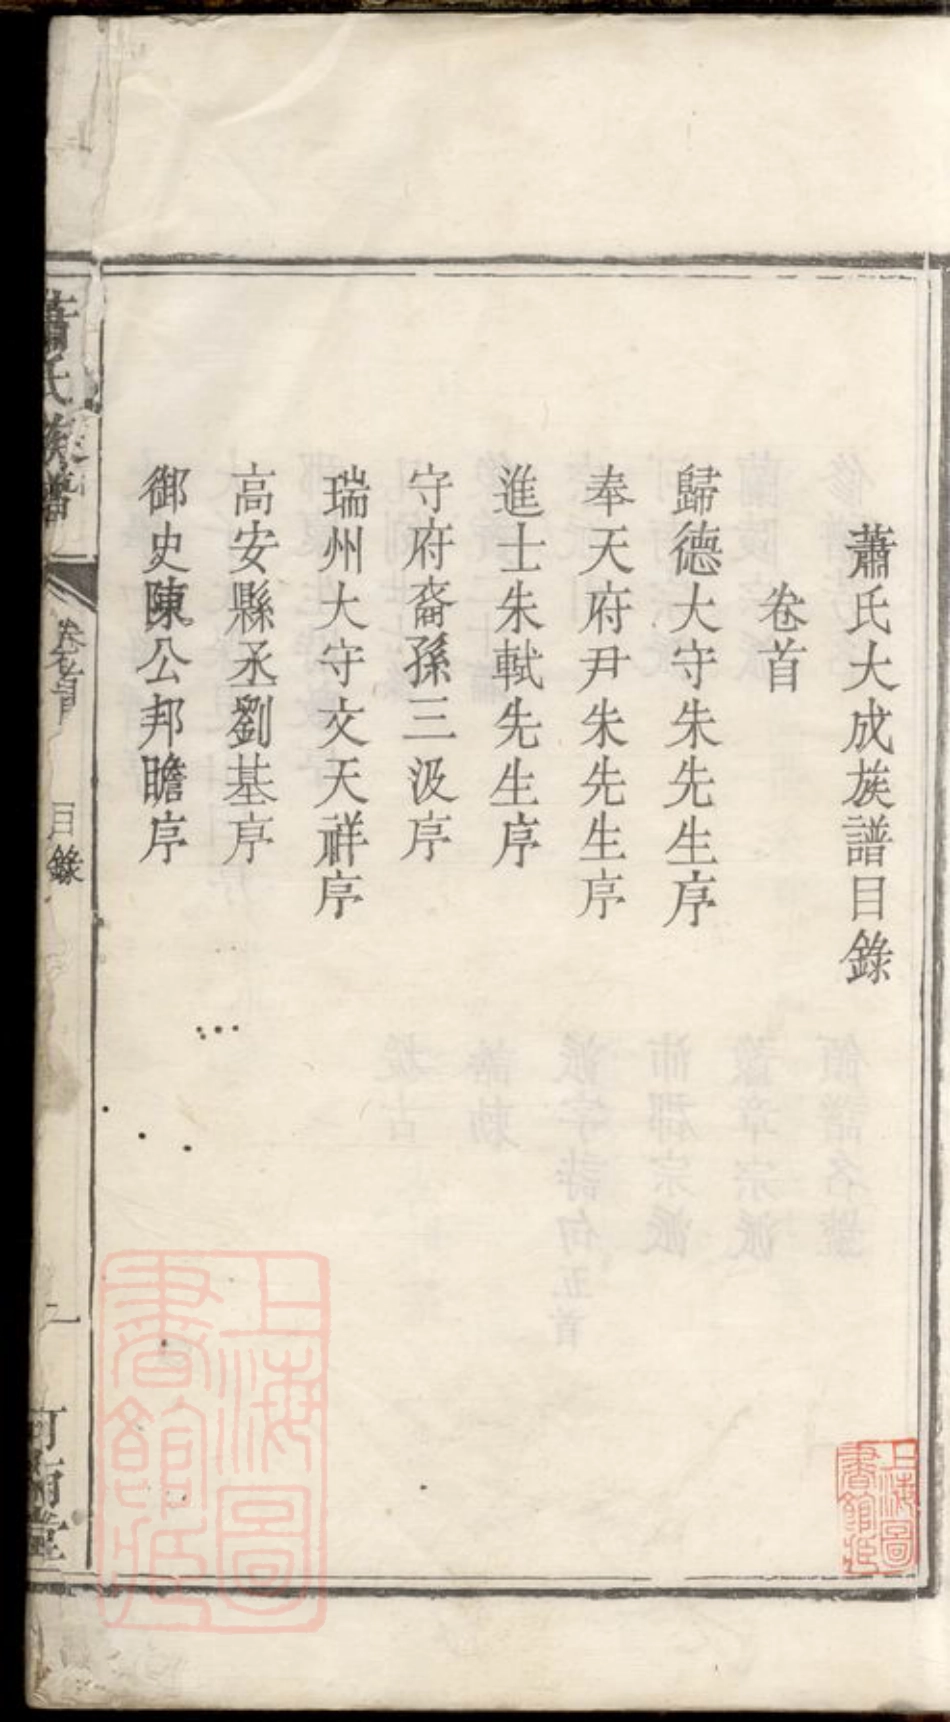 蕭氏大成族譜目錄
卷首
歸德大守朱先生序
奉天府尹朱先生序
進士朱軾先生序
守府裔孫三汲序
瑞州大守文天祥序
高安縣丞劉基序
御史陳公邦瞻序
蕭氏族譜
卷首
目錄
一
河南堂
上海圖書館藏
上海圖書館藏